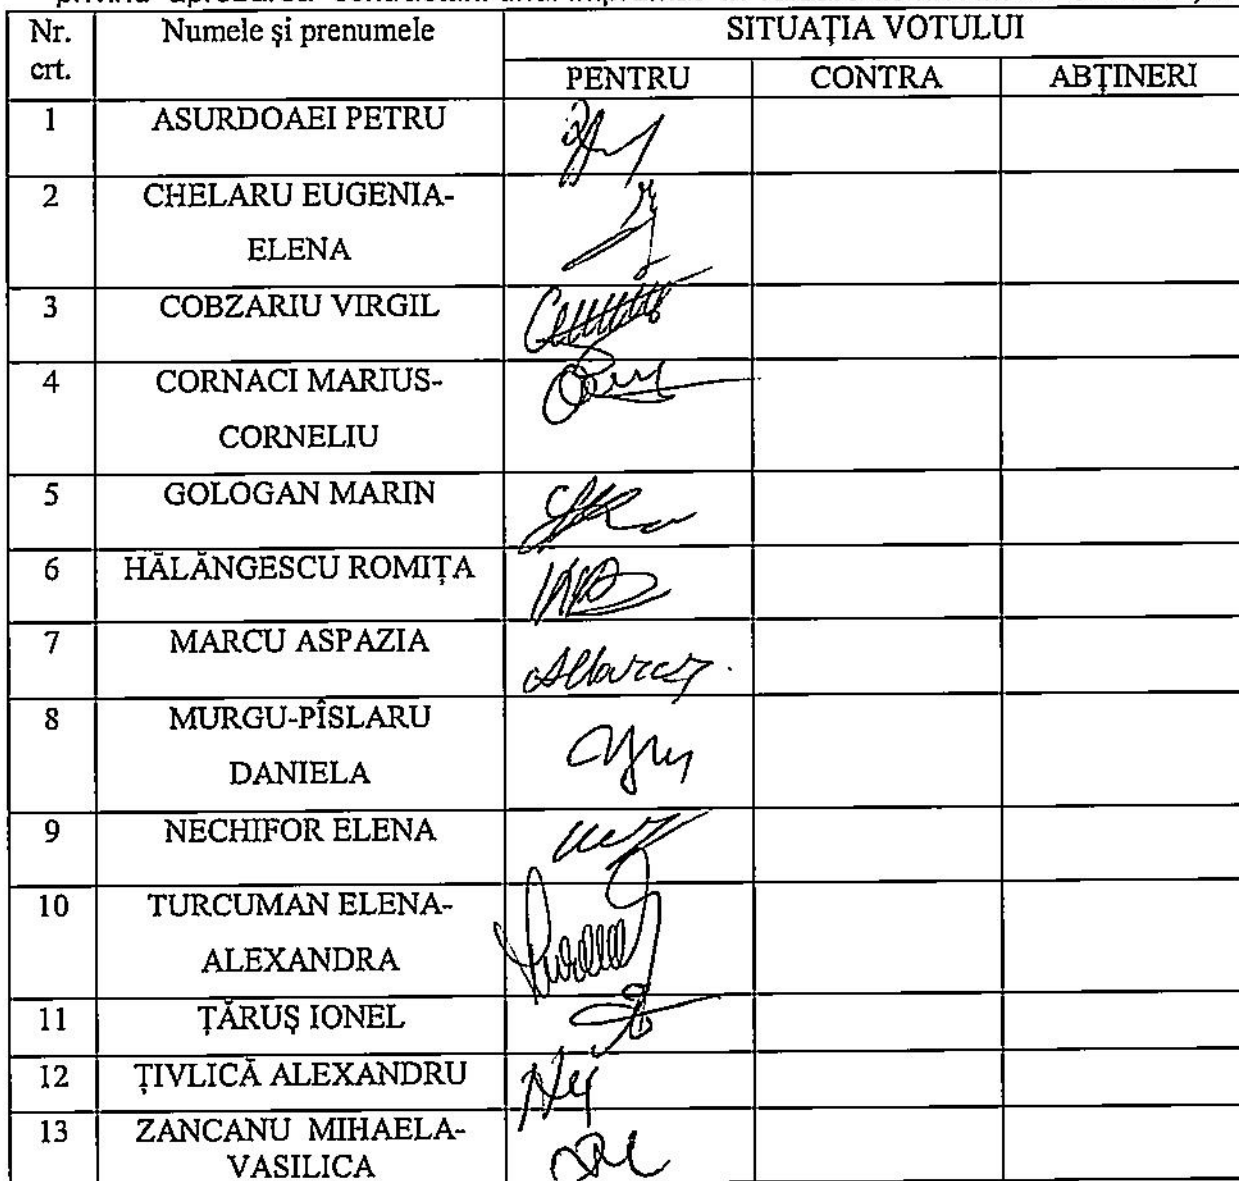 privind aprobarea
Nr. crt. Numele și prenumele SITUAȚIA VOTULUI
PENTRU CONTRA ABȚINERI
1 ASURDOAEI PETRU
2 CHELARU EUGENIA-
ELENA
3 COBZARIU VIRGIL
4 CORNACI MARIUS-
CORNELIU
5 GOLOGAN MARIN
6 HĂLĂNGESCU ROMIȚA
7 MARCU ASPAZIA
8 MURGU-PÎSLARU
DANIELA
9 NECHIFOR ELENA
10 TURCUMAN ELENA-
ALEXANDRA
11 ȚĂRUȘ IONEL
12 ȚIVLICĂ ALEXANDRU
13 ZANCANU MIHAELA-
VASILICA